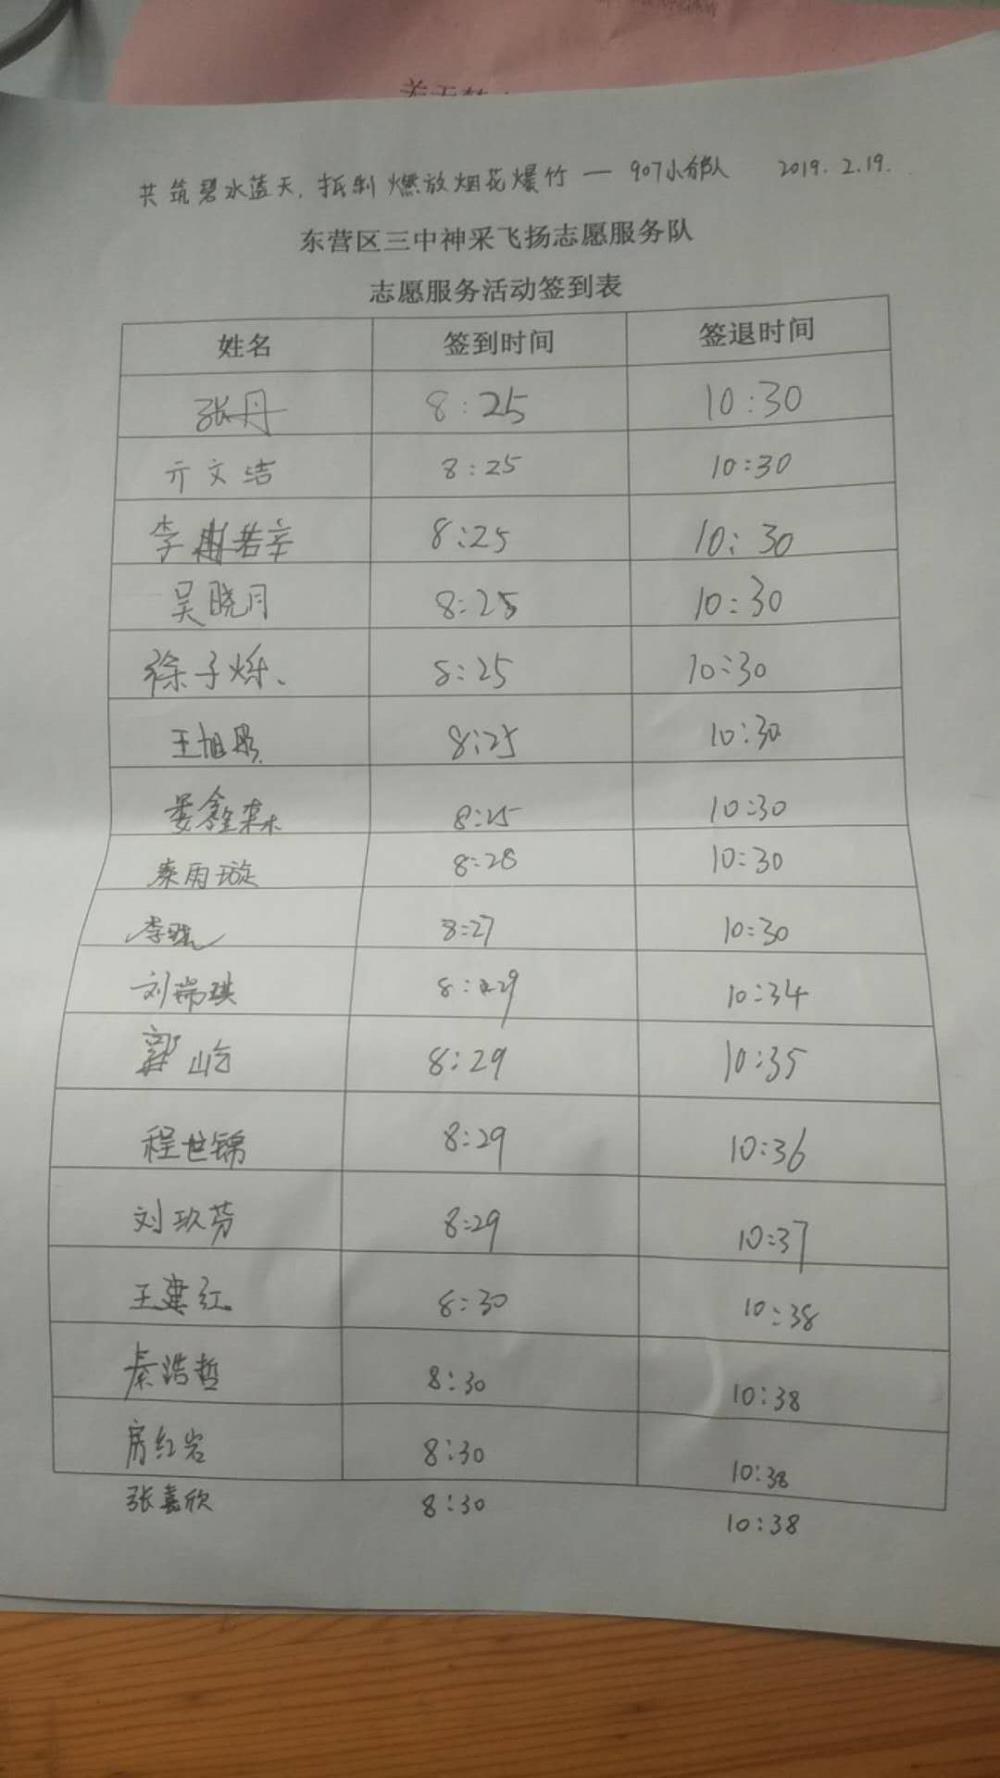 共筑碧水蓝天,抵制燃放烟花爆竹一907小部队 2019.2.19.
东营区三中神采飞扬志愿服务队
志愿服务活动签到表
姓名 签到时间 签退时间
张丹 8:25 10:30
亓文洁 8:25 10:30
李 若辛 8:25 10:30
吴晓月 8:25 10:30
徐子烁、 8:25 10:30
王旭彤 8:25 10:30
8:25 10:30
秦雨璇 8:28 10:30
李晓 8:27 10:30
刘瑞琪 8:29 10:34
郭屹 8:29 10:35
程世锦 8:29 10:36
刘玖芬 8:29 10:37
王建红 8:30 10:38
秦浩哲 8:30 10:38
房红岩 8:30 10:38
张嘉欣 8:30 10:38